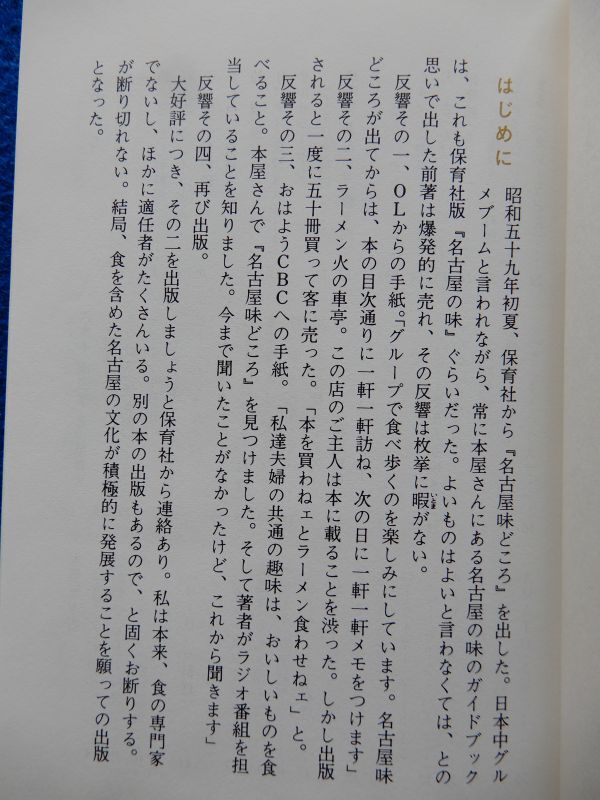 はじめに
昭和五十九年初夏、保育社から『名古屋味どころ』を出した。日本中グル
メブームと言われながら、常に本屋さんにある名古屋の味のガイドブック
は、これも保育社版『名古屋の味』ぐらいだった。よいものはよいと言わなくては、との
思いで出した前著は爆発的に売れ、その反響は枚挙に暇がない。
反響その一、OLからの手紙。「グループで食べ歩くのを楽しみにしています。名古屋味
どころが出てからは、本の目次通りに一軒一軒訪ね、次の日に一軒一軒メモをつけます」
反響その二、ラーメン火の車亭。この店のご主人は本に載ることを渋った。しかし出版
されると一度に五十冊買って客に売った。「本を買わねェとラーメン食わせねェ」と。
反響その三、おはようCBCへの手紙。「私達夫婦の共通の趣味は、おいしいものを食
べること。本屋さんで『名古屋味どころ』を見つけました。そして著者がラジオ番組を担
当していることを知りました。今まで聞いたことがなかったけど、これから聞きます」
反響その四、再び出版。
大好評につき、その二を出版しましょうと保育社から連絡あり。私は本来、食の専門家
でないし、ほかに適任者がたくさんいる。別の本の出版もあるので、と固くお断りする。
が断り切れない。結局、食を含めた名古屋の文化が積極的に発展することを願っての出版
となった。